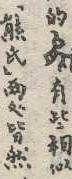 的有些相似
「熊氏」两处皆然